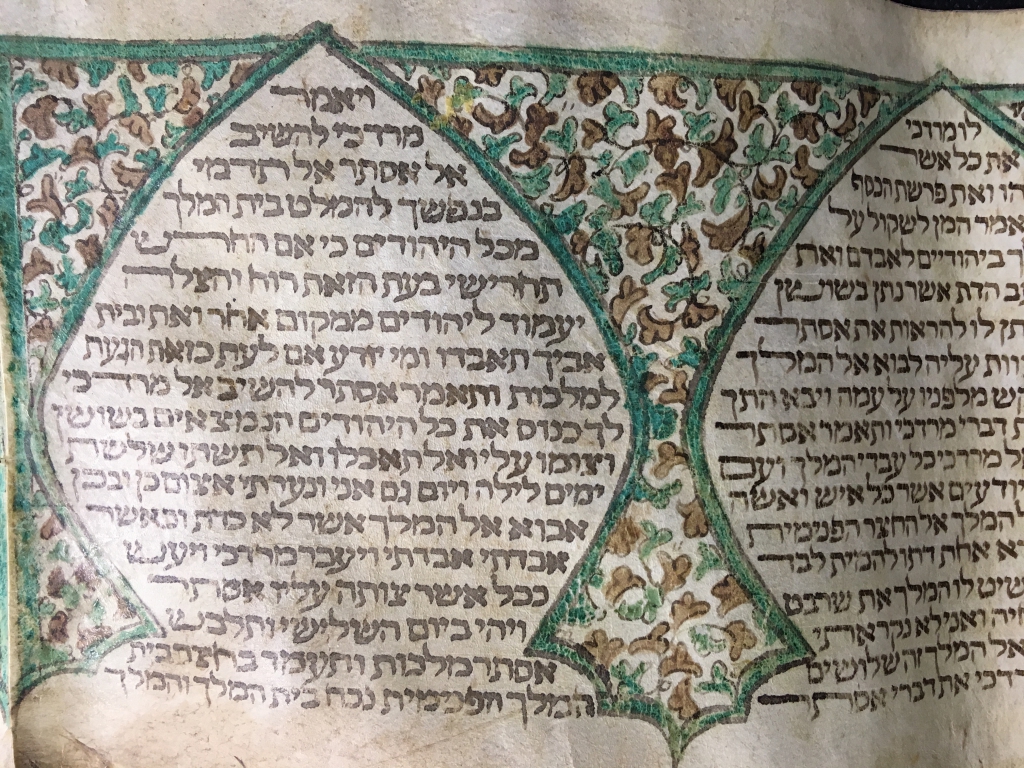 לו מרדכי
את כל אשר
ואת פרשת הכסף
אמר המן לשקול על
ביהודיים לאבדם ואת
הדת אשר נתן בשושן
לו להראות את אסתר
עליה לבוא אל המלך
מלפניו על עמה ויבא התך
דברי מרדכי ותאמר אסתר
מרדכי כל עבדי המלך ועם
יודעים אשר כל איש ואשה
המלך אל החצר הפנימית
אחת דתו להמית לבד
לו המלך את שרביט
ואני לא נקראתי
אל המלך זה שלושים
את דברי אסתר
ויאמר
מרדכי להשיב
אל אסתר אל תדמי
בנפשך להמלט בית המלך
מכל היהודים כי אם החרש
תחרישי בעת הזאת רוח והצלה
יעמוד ליהודים ממקום אחר ואת ובית
אביך תאבדו ומי יודע אם לעת כזאת הגעת
למלכות ותאמר אסתר להשיב אל מרדכי
לך כנוס את כל היהודים הנמצאים בשושן
וצומו עלי ואל תאכלו ואל תשתו שלשת
ימים לילה ויום גם אני ונערתי אצום כן ובכן
אבוא אל המלך אשר לא כדת וכאשר
אבדתי אבדתי ויעבר מרדכי ויעש
ככל אשר צותה עליו אסתר
ויהי ביום השלישי ותלבש
אסתר מלכות ותעמד בחצר בית
המלך הפנימית נכח בית המלך והמלך